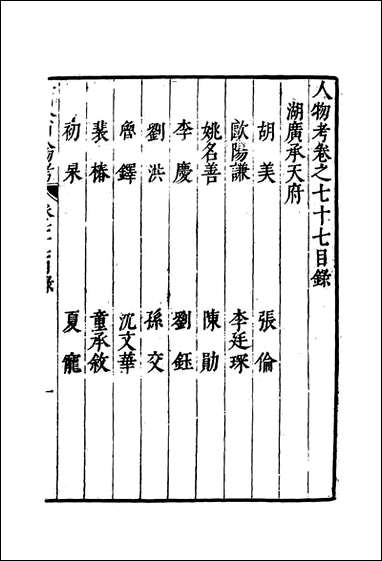 人物考卷之七十七目錄
湖廣承天府
胡美　張倫
歐陽謙　李廷琛
姚名善　陳勛
李慶　劉鈺
劉洪　孫交
魯鐸　沈文華
裴椿　童承敘
初杲　夏寵
一